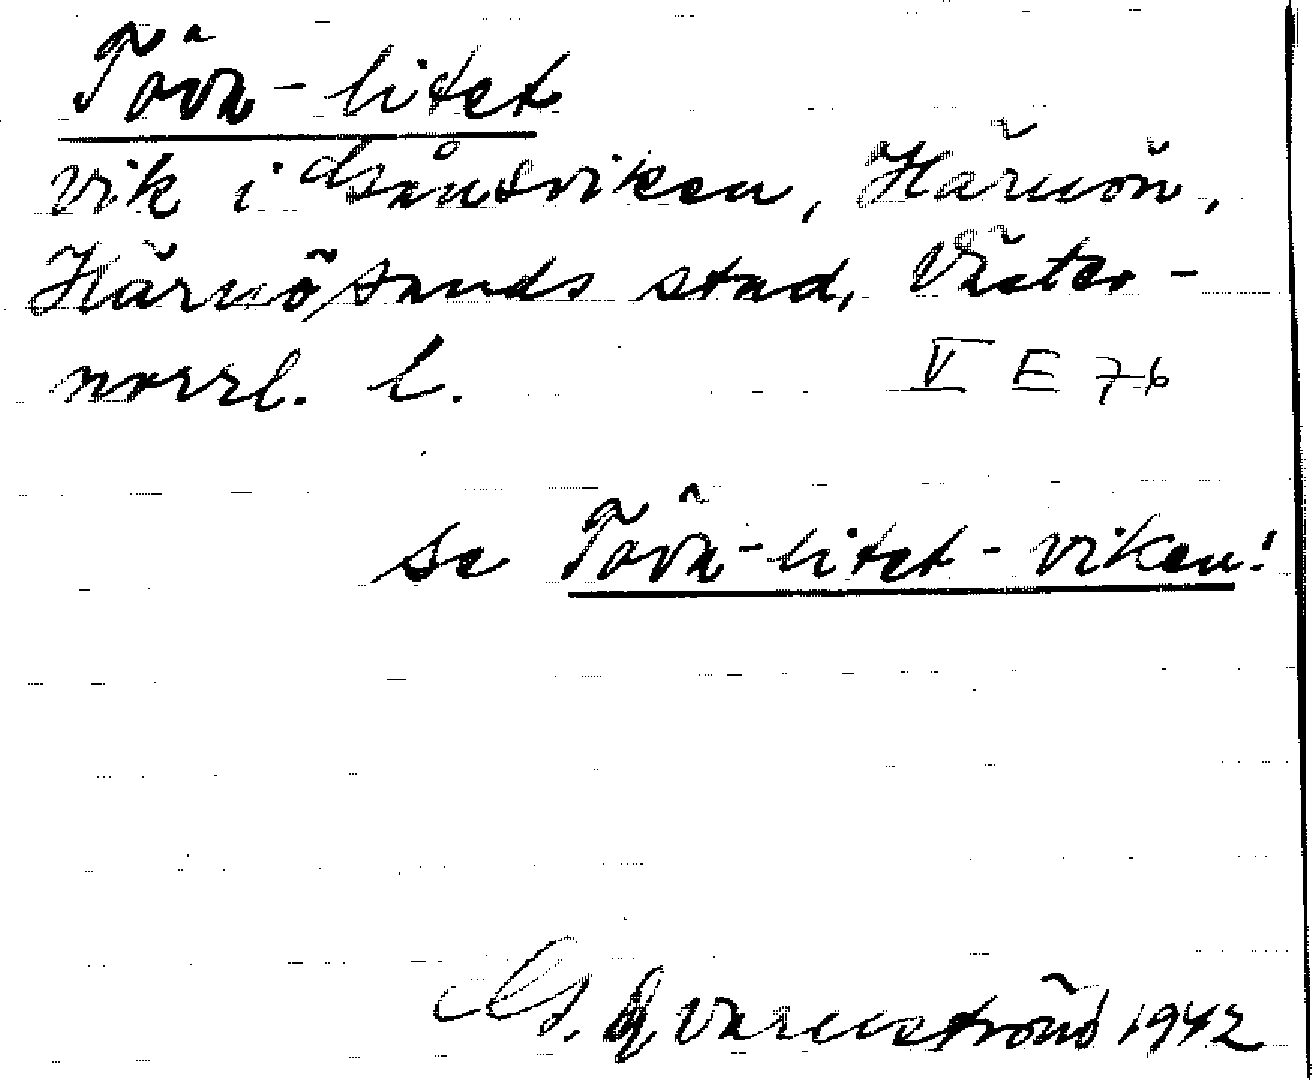 Töva-litet
vik i Gånsviken, Härnön,
Härnösands stad, Väster-
norrl. l. V E 76
se Töva-litet-viken!
G. Qvarnström 1942